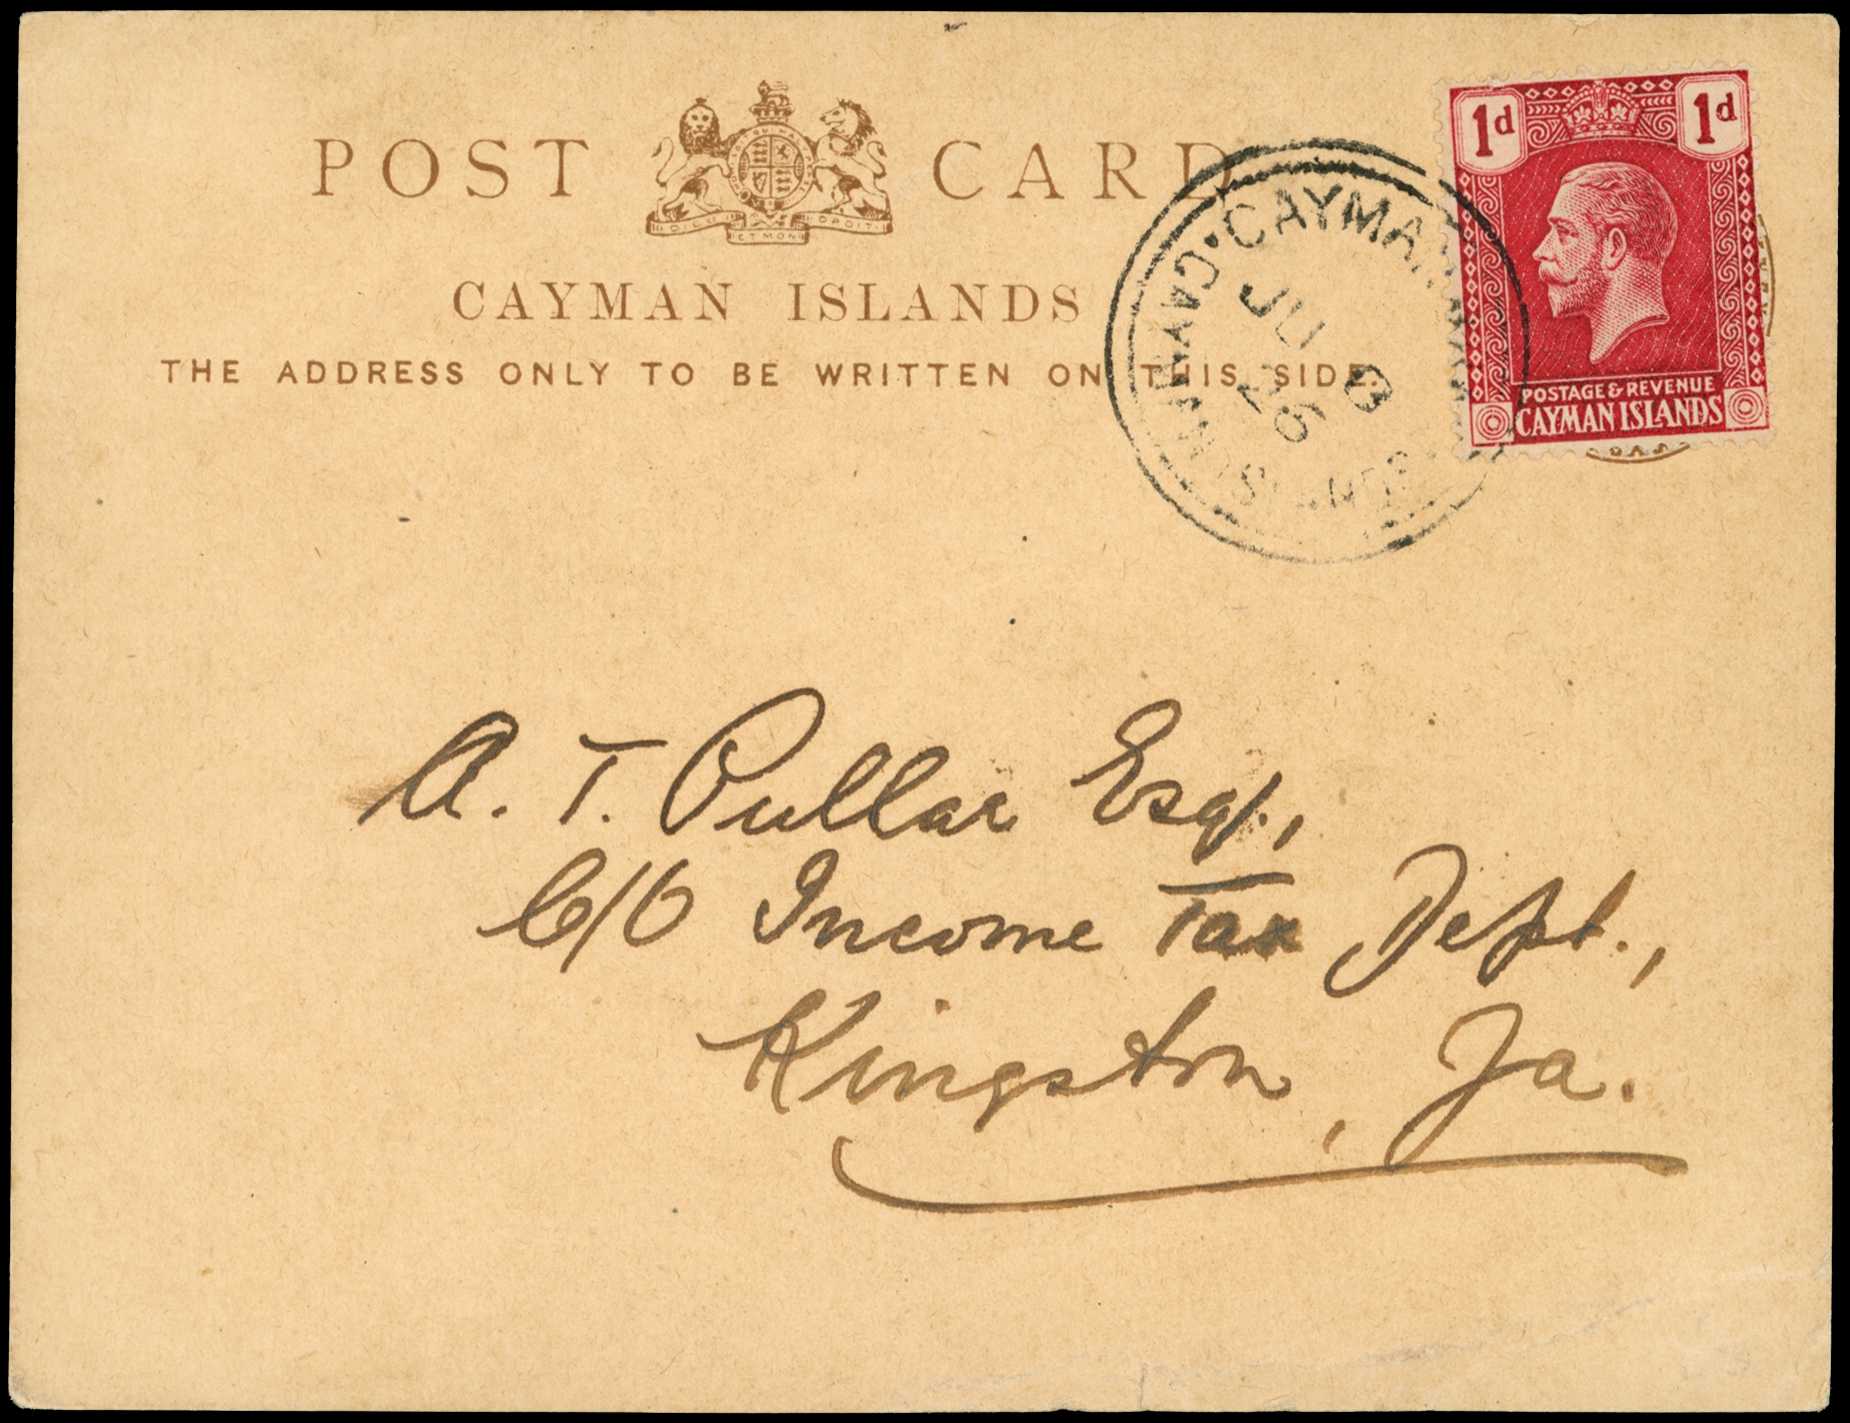 POST CARD
DIEU ET MON DROIT
CAYMAN ISLANDS
THE ADDRESS ONLY TO BE WRITTEN ON THIS SIDE.
1d 1d
POSTAGE & REVENUE
CAYMAN ISLANDS
CAYMAN
JU
26
A. T. Pullar Esq.,
C/O Income Tax Dept.,
Kingston, Ja.